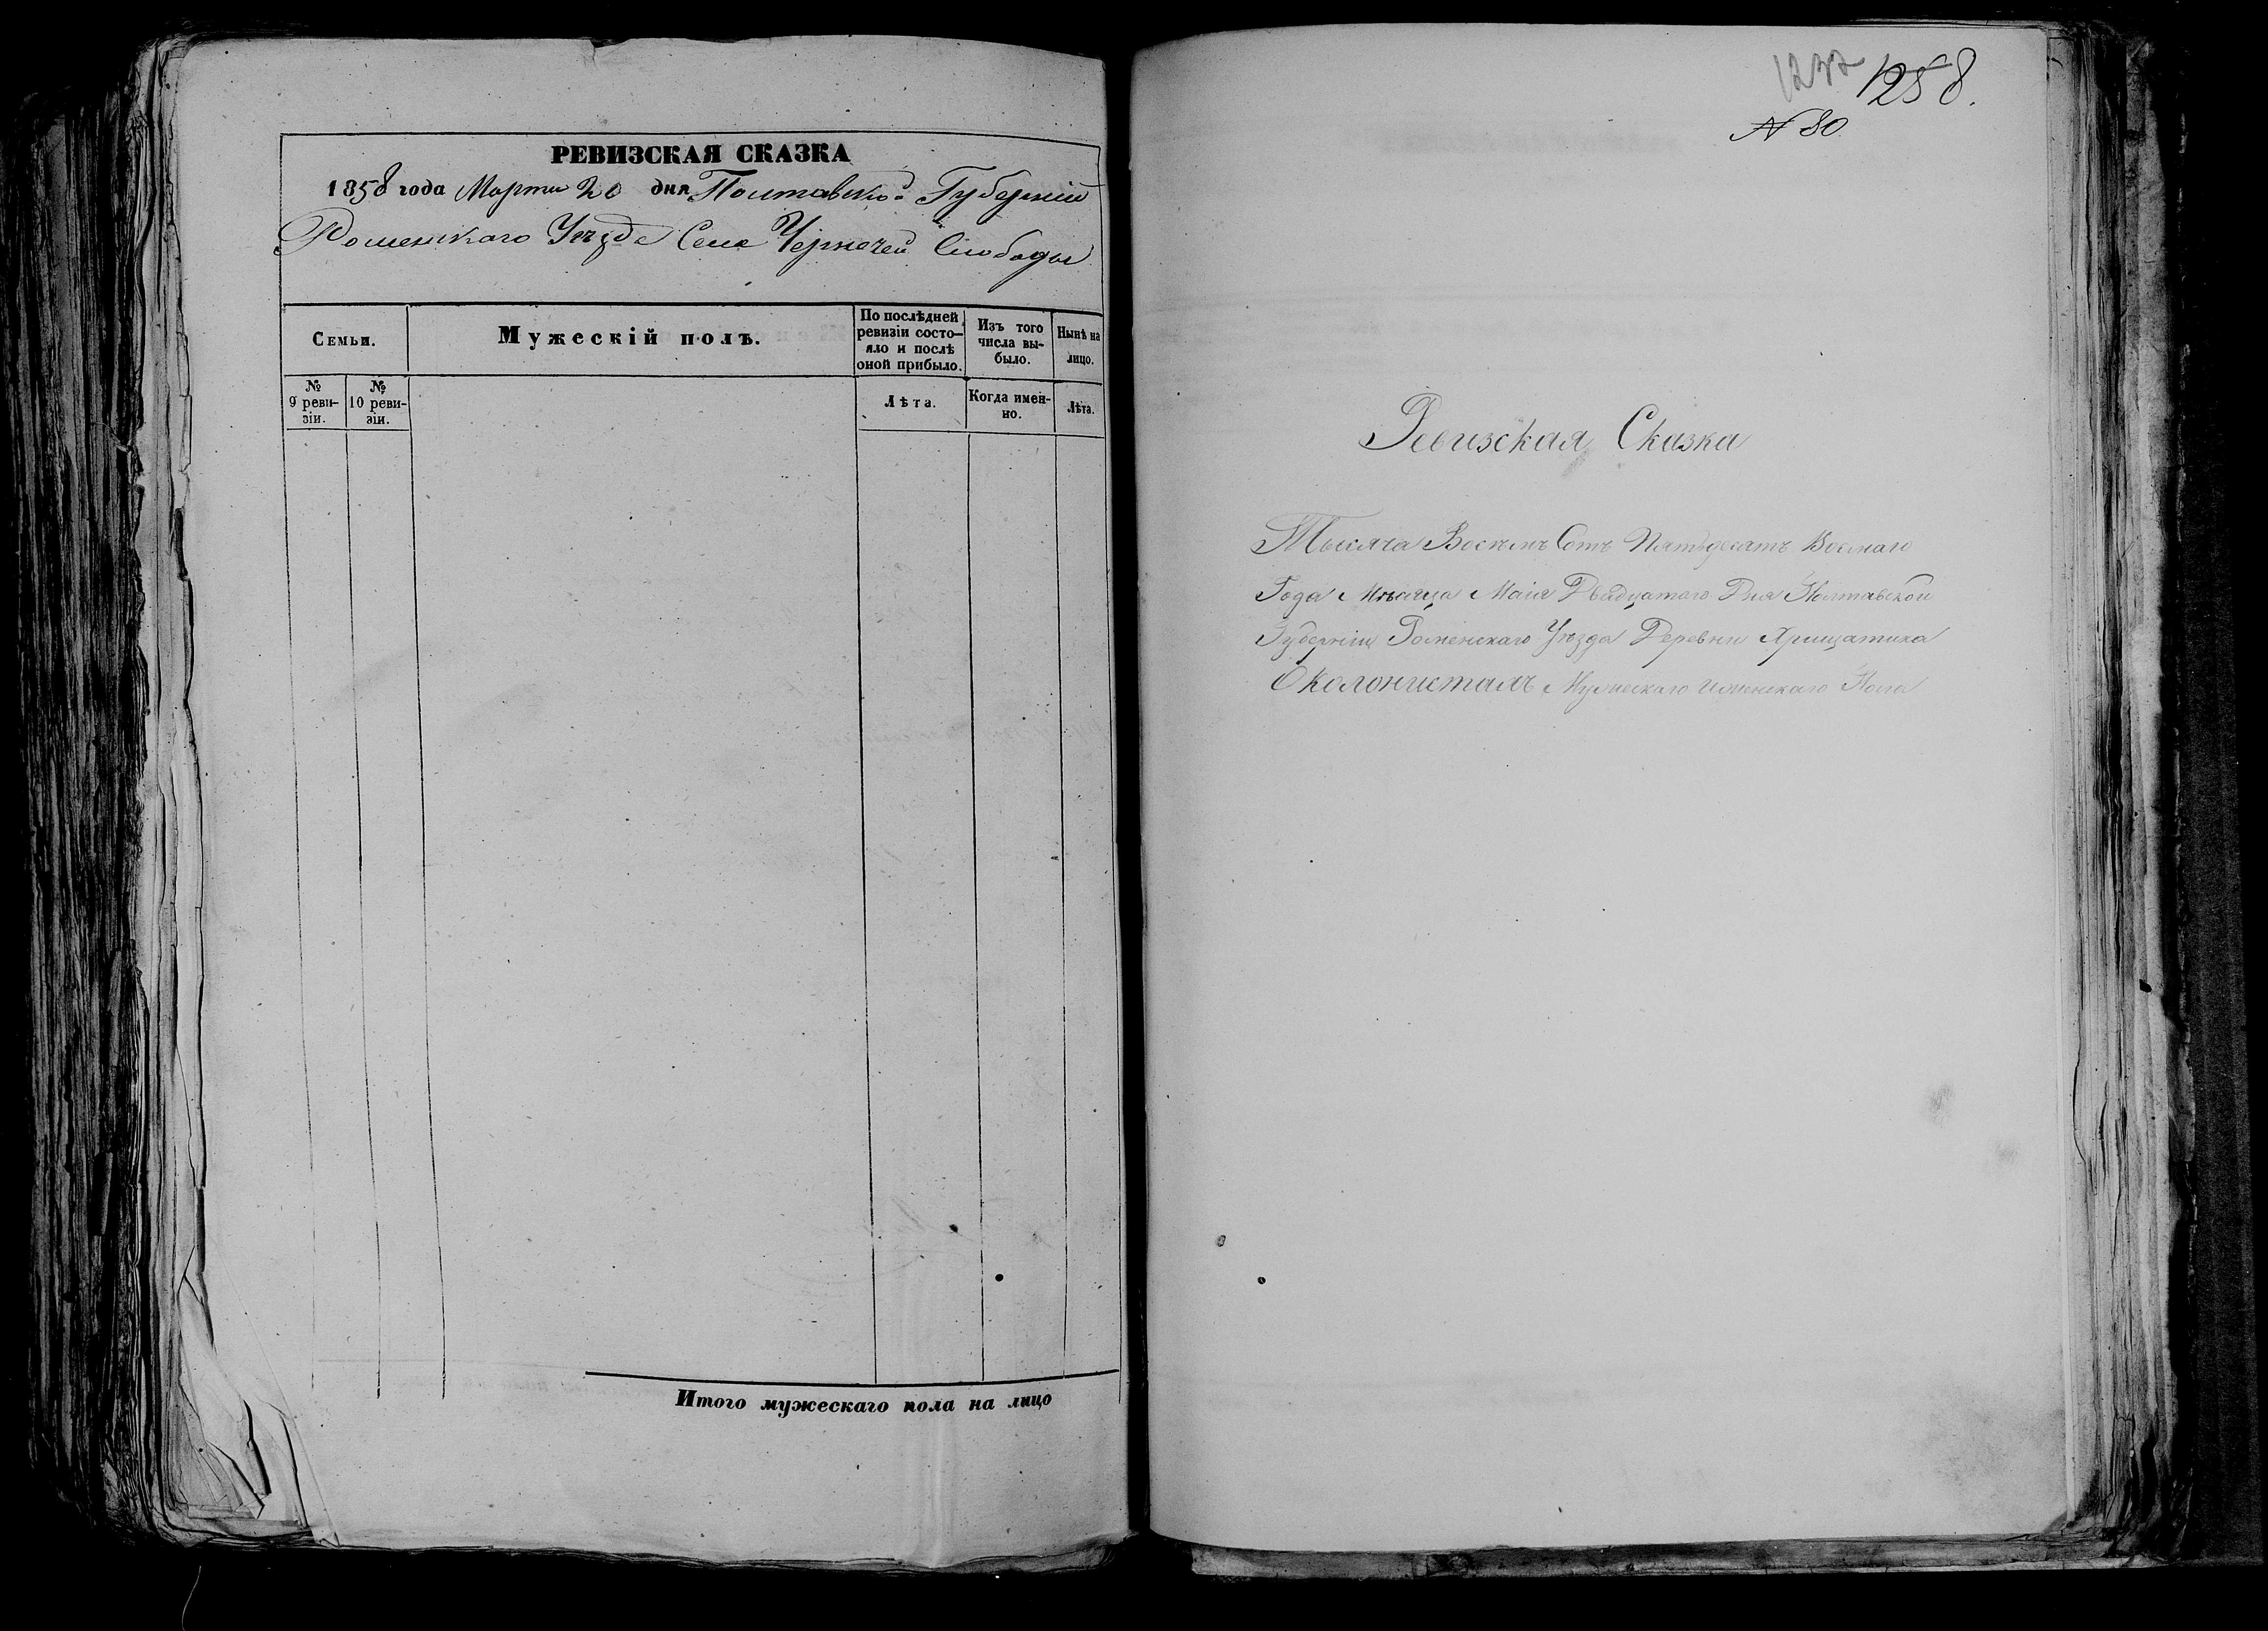 РЕВИЗСКАЯ СКАЗКА
1858 года Марта 20 дня Полтавской Губерніи
Роменскаго Уезда Села Чернечей Слободы
Семьи.
Мужескій полъ.
По послѣдней ревизіи состо-
яло и послѣ
оной прибыло.
Изъ того
числа вы-
было.
Нынѣ на
лицо.
№
9 реви-
зіи.
№
10 реви-
зіи.
Лѣта.
Когда имен-
но.
Лѣта.
Итого мужескаго пола на лицо
1237 1258.
№ 80
Ревизская Сказка
Тысяча Восемъ Сотъ Пятьдесятъ Восмаго
Года Мѣсяца Маія Двадцатаго Дня Полтавской
Губерніи Роменскаго Уѣзда Деревни Хрищатика
О колонистахъ Мужескаго и женскаго Пола